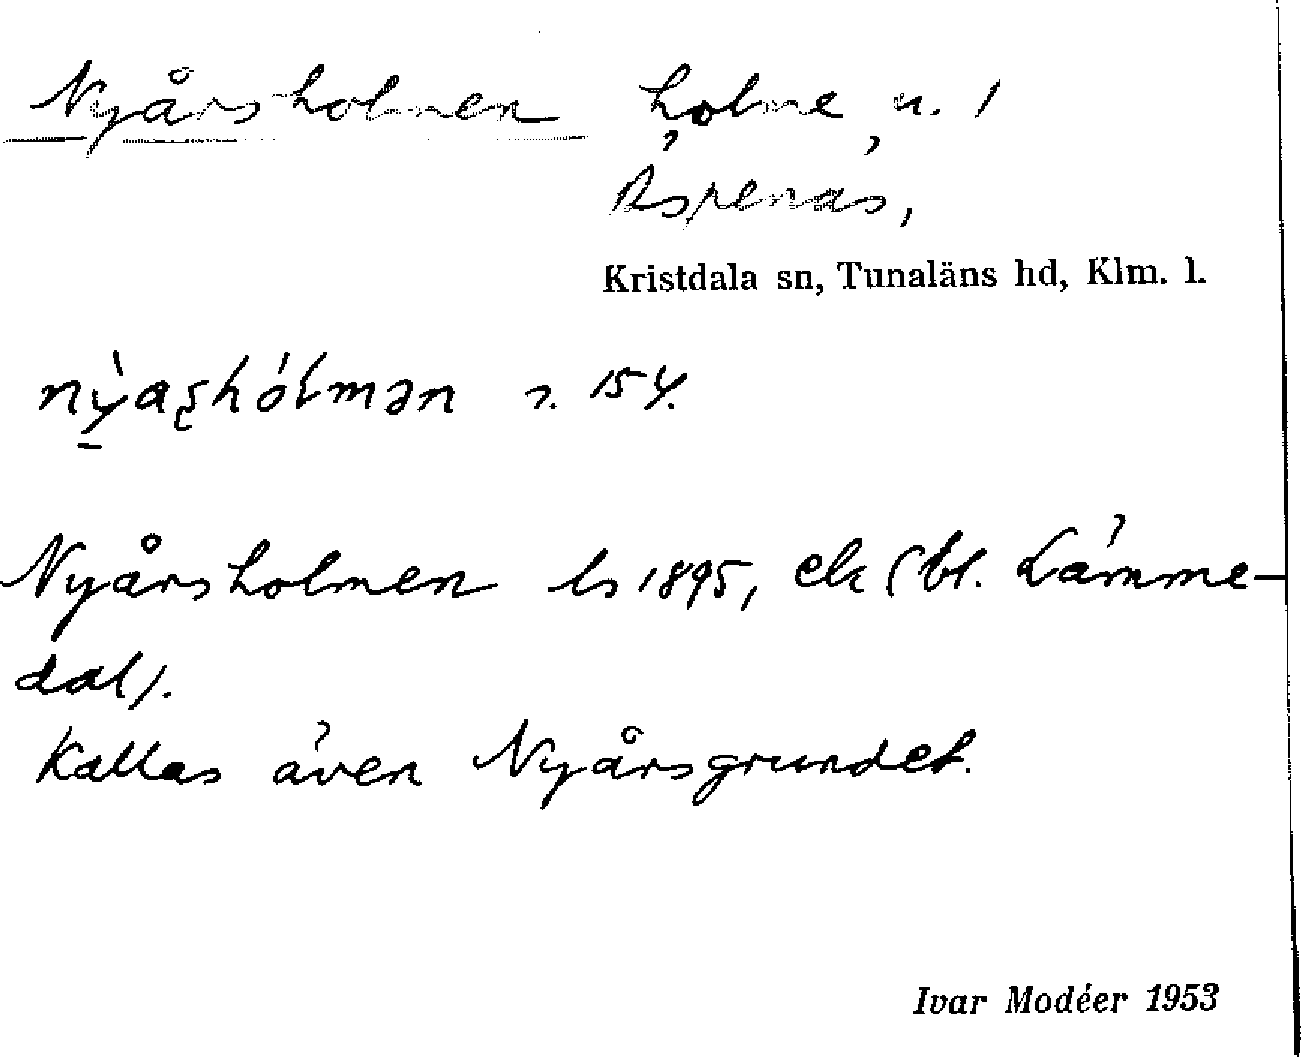 Nyårsholmen holme u. 1
Äspenäs,
Kristdala sn, Tunaläns hd, Klm. l.
nỳaʂhólmən s. 154.
Nyårsholmen ls 1895, ek (bl. Lämme-
dal).
Kallas även Nyårsgrundet.
Ivar Modéer 1953